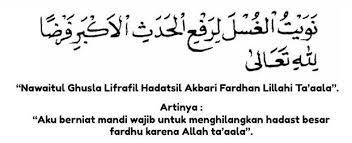 نَوَيْتُ الْغُسْلَ لِرَفْعِ الْحَدَثِ الْاَكْبَرِ فَرْضًا
لِلّٰهِ تَعَالَىٰ
“Nawaitul Ghusla Lifrafil Hadatsil Akbari Fardhan Lillahi Ta'aala”.
Artinya :
“Aku berniat mandi wajib untuk menghilangkan hadast besar
fardhu karena Allah ta'aala”.